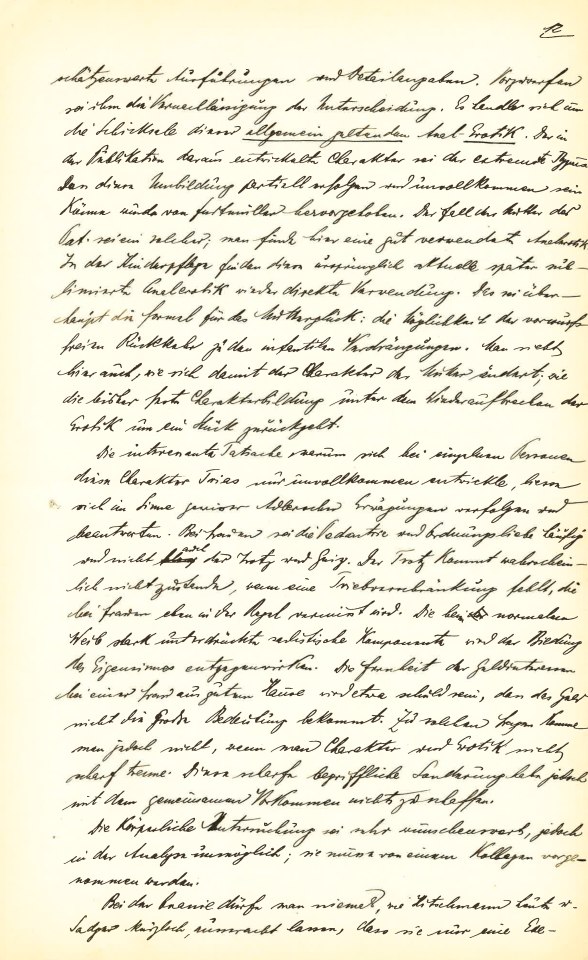 12
schätzenswerte Ausführungen und Detailangaben. Vorzuwerfen
sei ihm die Vernachlässigung der Unterscheidung. Es handle sich um
die Schicksale dieser allgemein geltenden Anal-Erotik. Der in
der Publikation daraus entwickelte Charakter sei der extremste Typus.
Dass diese Umbildung partiell erfolgen und unvollkommen sein
könne würde von Furtmüller hervorgehoben. Der Fall der Mutter des
Pat. sei ein solcher; man finde hier eine gut verwendete Analerotik
In der Kinderpflege finden diese ursprünglich aktuelle später sub-
limierte Analerotik wieder direkte Verwendung. Das sei über-
haupt die Formel für das Mutterglück: die Möglichkeit der vorwurfs-
freien Rückkehr zu den infantilen Verdrängungen. Man sieht
hier auch, wie sich damit der Charakter der Mutter ändert; wie
die bisher feste Charakterbildung unter dem Wiederauftreten der
Erotik um ein Stück zurückgeht.
Die interessante Tatsache warum sich bei einzelnen Personen
diese Charakter Trias nur unvollkommen entwickle, liesse
sich im Sinne gewisser Adlerscher Erwägungen verfolgen und
beantworten. Bei Frauen sei die Pedanterie und Ordnungsliebe häufig
und nicht auch der Trotz und Geiz. Der Trotz kommt wahrschein-
lich nicht zustande, wenn eine Triebverschränkung fehlt, die
bei Frauen eben in der Regel vermisst wird. Die beim normalen
Weib stark unterdrückte sadistische Komponente wird der Bildung
des Eigensinnes entgegenwirken. Die Fremdheit der Geldinteressen
bei einer Frau aus gutem Hause wird etwa schuld sein, dass das Geld
nicht die grosse Bedeutung bekommt. Zu solchen Fragen komme
man jedoch nicht, wenn man Charakter und Erotik nicht
scharf trenne. Diese scharfe begriffliche Sonderung habe jedoch
mit dem gemeinsamen Vorkommen nichts zu schaffen.
Die körperliche Untersuchung sei sehr wünschenswert, jedoch
in der Analyse unmöglich; sie müsse von einem Kollegen vorge-
nommen werden.
Bei der Onanie dürfe man niemals, wie Hitschmann heute u.
Sadger neulich, ausser acht lassen, dass sie nur eine Exe-